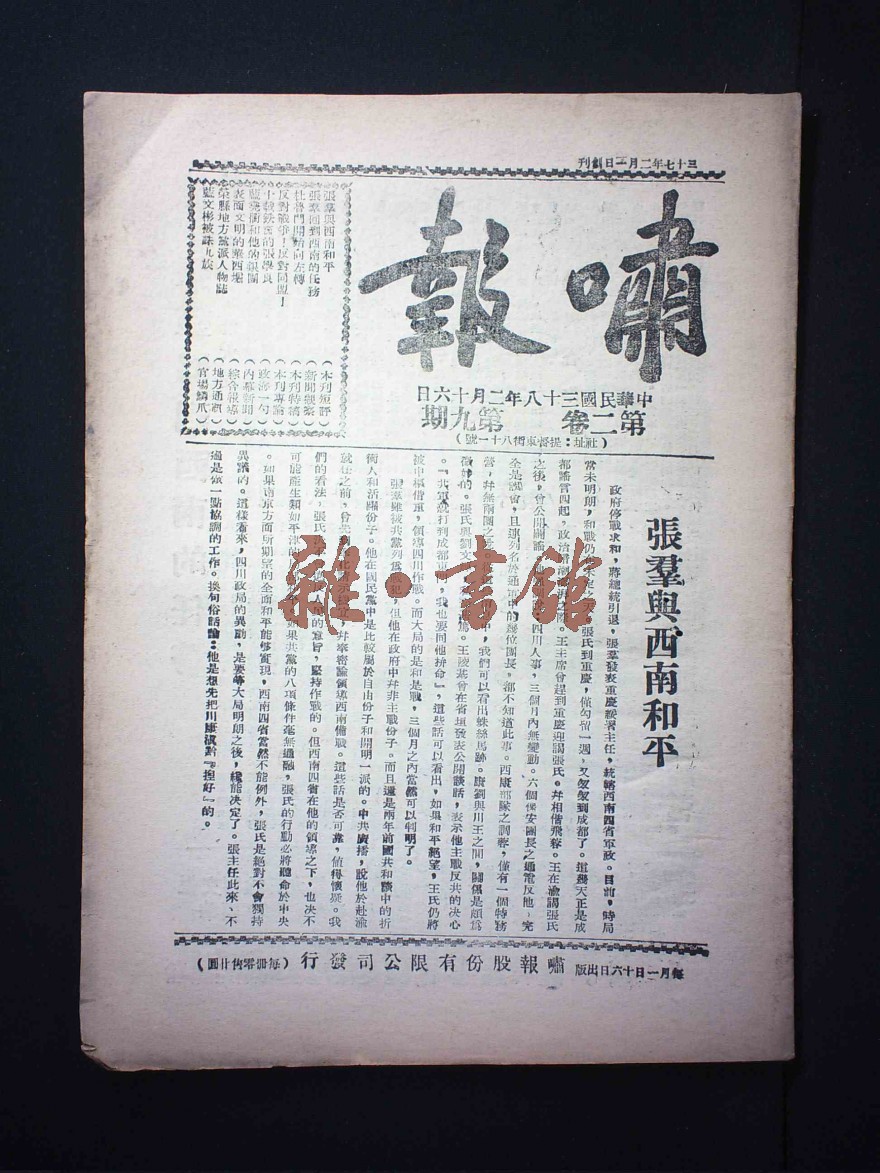 三十七年二月一日創刊
嘯報
中華民國三十八年二月十六日
第二卷 第九期
(社址:提督東街八十一號)
張羣與西南和平 (本刊短評)
張羣回到西南的任務 (新聞觀察)
杜魯門開始向左轉 (本刊特稿)
反對戰爭!反對同盟! (本刊專論)
十載鉄窗的張學良 (政海一勺)
藍堯衢和他的銀團 (內幕新聞)
表面文明的華西壩 (綜合報導)
榮縣地方黨派人物誌 (地方通訊)
藍文彬被誅九族 (官場鱗爪)
張羣與西南和平
政府停戰求和,蔣總統引退,張羣發表重慶綏署主任,統轄西南四省軍政。目前,時局
當未明朗,和戰仍 張氏到重慶,僅勾留一週,又匆匆到成都了。這幾天正是成
都謠言四起,政治 王主席曾趕到重慶迎謁張氏。幷相偕飛蓉。王在渝謁張氏
之後,曾公開 四川人事,三個月內無變動。六個保安團長之通電反他,完
全是謠言,且連列名於通電中的幾位團長,都不知道此事。西康部隊之調蓉,僅有一個特務
營,幷無兩團之 中,我們可以看出蛛絲馬跡。康劉與川王之間,關係是頗爲
微妙的。張氏與劉文 王陵基曾在省垣發表公開談話,表示他主戰反共的决心
。『共軍 打到成都 我也要同他拚命』,這些話可以看出,如果和平絕望,王氏仍將
被中樞借重,領導四川作戰。而大局的是和是戰,三個月之內當然可以判明了。
張羣雖被共黨列爲戰犯,但他在政府中幷非主戰份子。而且還是兩年前國共和談中的折
衝人和活躍份子。他在國民黨中是比較屬於自由份子和開明一派的。中共廣播,說他於赴渝
就任之前,曾 幷奉密諭領導西南備戰。這些話是否可靠,値得懷疑。我
們的看法,張氏 意旨,堅持作戰的。但西南四省在他的領導之下,也决不
可能產生類如平津的 如果共黨的八項條件毫無通融,張氏的行動必將聽命於中央
。如果南京方面所期望的全面和平能够實現,西南四省當然不能例外,張氏是絕對不會獨持
異議的。這樣看來,四川政局的異動,是要等大局明朗之後,纔能决定了。張主任此來、不
過是做一點協調的工作。換句俗話講:他是想先把川康滇黔『揑好』的。
每月一日十六日出版 嘯報股份有限公司發行 (每冊零售廿圓)
雜·書館